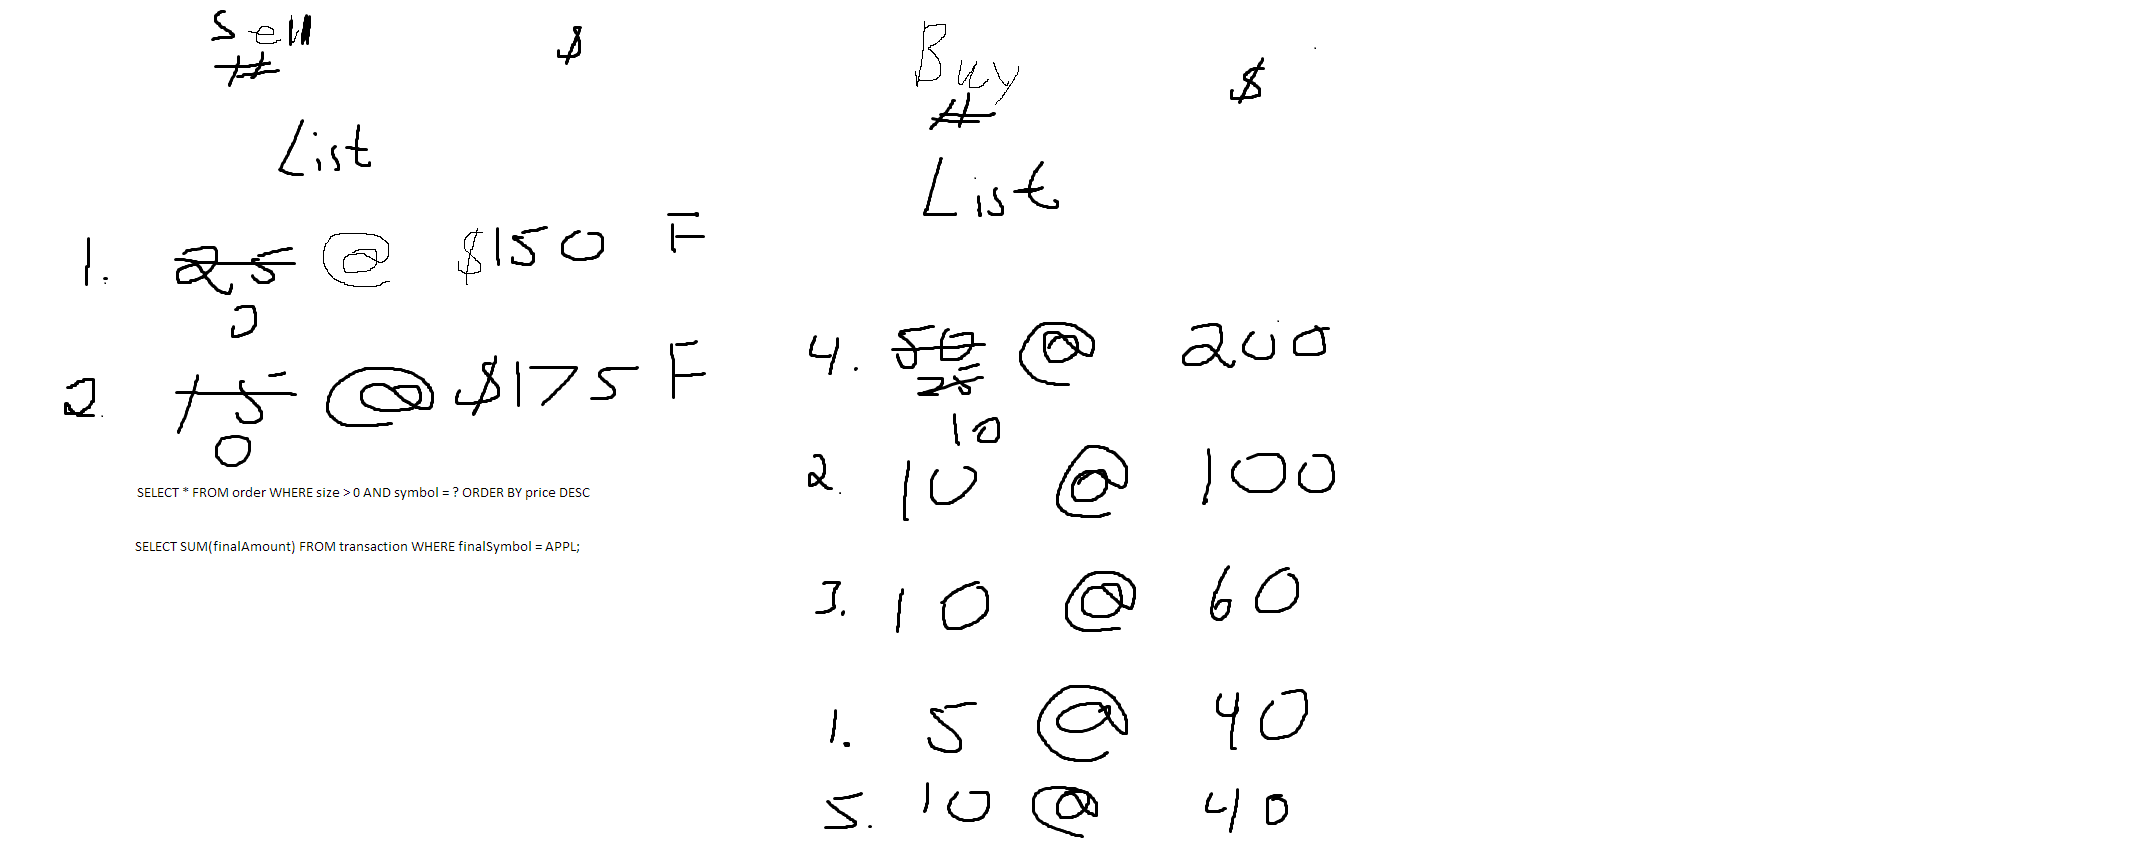 Sell $
#
List
1. 25 @ $150 F
0
2. 15 @ $175 F
0
SELECT * FROM order WHERE size > 0 AND symbol = ? ORDER BY price DESC
SELECT SUM(finalAmount) FROM transaction WHERE finalSymbol = APPL;
Buy $
#
List
4. 50 @ 200
25
10
2. 10 @ 100
3. 10 @ 60
1. 5 @ 40
5. 10 @ 40